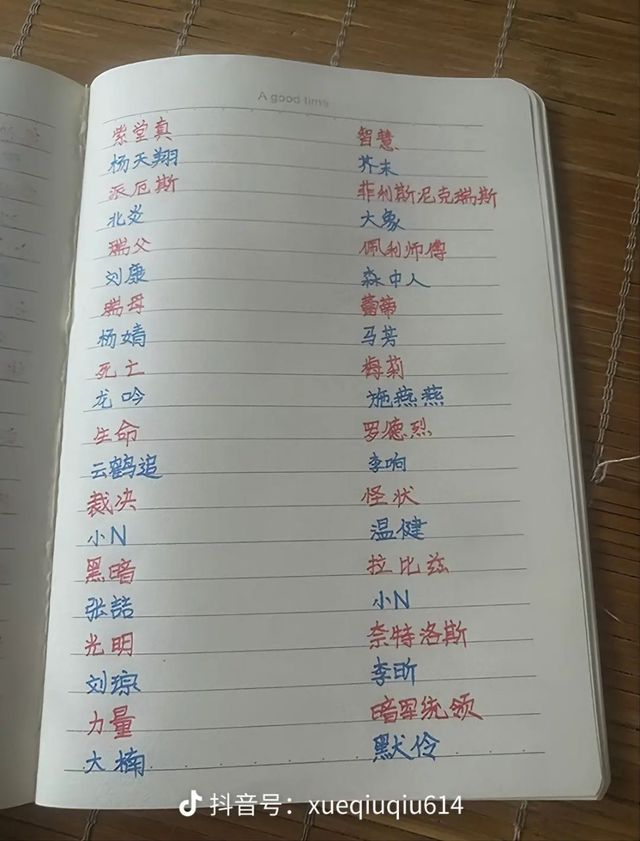 A good time
紫堂真 智慧
杨天翔 芥末
派厄斯 菲利斯尼克瑞斯
北炎 大象
瑞父 佩利师傅
刘康 森中人
瑞母 蕾蒂
杨婧 马芳
死亡 梅莉
龙吟 施燕燕
生命 罗德烈
云鹤追 李响
裁决 怪状
小N 温健
黑暗 拉比兹
张喆 小N
光明 奈特洛斯
刘琮 李昕
力量 暗军统领
大楠 默伶
抖音号：xueqiuqiu614